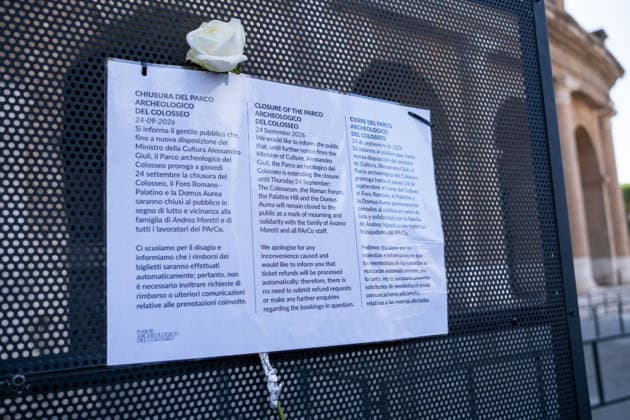 CHIUSURA DEL PARCO
ARCHEOLOGICO
DEL COLOSSEO
24-09-2026
Si informa il gentile pubblico che,
fino a nuova disposizione del
Ministro della Cultura Alessandro
Giuli, il Parco archeologico del
Colosseo proroga a giovedì
24 settembre la chiusura del
Colosseo, il Foro Romano -
Palatino e la Domus Aurea
saranno chiusi al pubblico in
segno di lutto e vicinanza alla
famiglia di Andrea Moretti e di
tutti i lavoratori del PArCo.
Ci scusiamo per il disagio e
informiamo che i rimborsi dei
biglietti saranno effettuati
automaticamente; pertanto, non
è necessario inoltrare richieste di
rimborso o ulteriori comunicazioni
relative alle prenotazioni coinvolte.
PARCO
ARCHEOLOGICO
DEL COLOSSEO
CLOSURE OF THE PARCO
ARCHEOLOGICO
DEL COLOSSEO
24 September 2026
We would like to inform the public
that, until further notice from the
Minister of Culture, Alessandro
Giuli, the Parco archeologico del
Colosseo is extending the closure
until Thursday 24 September:
The Colosseum, the Roman Forum,
the Palatine Hill and the Domus
Aurea will remain closed to the
public as a mark of mourning and
solidarity with the family of Andrea
Moretti and all PArCo staff.
We apologise for any
inconvenience caused and
would like to inform you that
ticket refunds will be processed
automatically; therefore, there is
no need to submit refund requests
or make any further enquiries
regarding the bookings in question.
CIERRE DEL PARCO
ARCHEOLOGICO
DEL COLOSSEO
24 de septiembre de 2026
Se informa al público que, hasta
nueva disposición del ministro
de Cultura, Alessandro Giuli,
el Parco archeologico del Colosseo
prorroga hasta el jueves 24 de
septiembre el cierre del Coliseo,
el Foro Romano, el
Palatino y la Domus Aurea permanecerán
cerrados al público en señal de
luto y solidaridad con la familia
de Andrea Moretti y con todos los
trabajadores del PArCo.
Pedimos disculpas por las
molestias e informamos de que
los reembolsos de las entradas se
realizarán automáticamente; por
lo tanto, no es necesario
solicitudes de reembolso ni enviar
comunicaciones adicionales
relativas a las reservas afectadas.